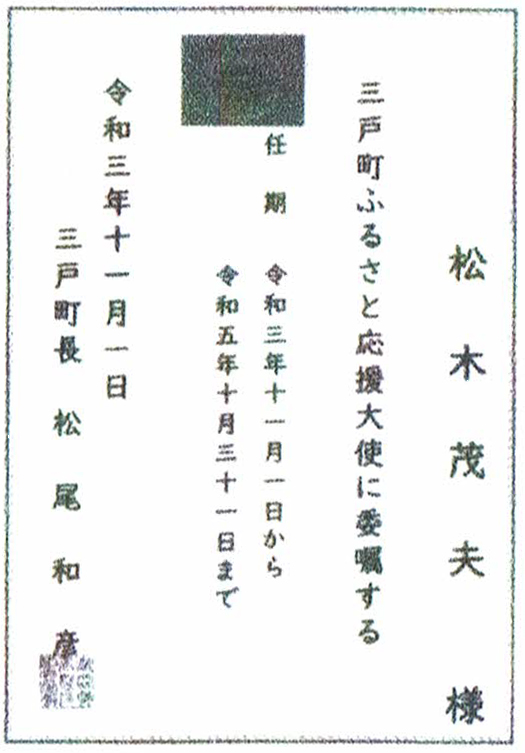 松木茂夫 様
三戸町ふるさと応援大使に委嘱する
任期 令和三年十一月一日から
令和五年十月三十一日まで
令和三年十一月一日
三戸町長 松尾和彦